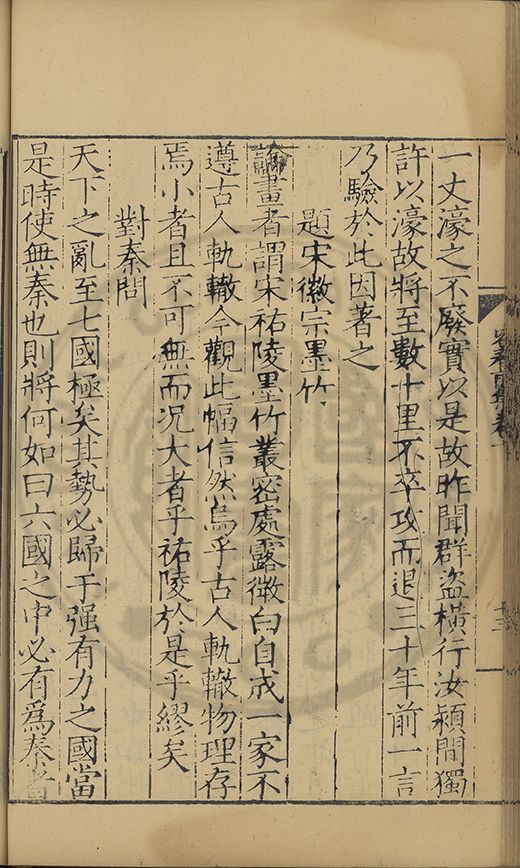 一丈濠之不廢實以是故昨聞群盜橫行汝潁間獨
許以濠故將至數十里不卒攻而退三十年前一言
乃驗於此因著之
題宋徽宗墨竹
論畫者謂宋祐陵墨竹叢密處露微白自成一家不
遵古人軌轍今觀此幅信然烏乎古人軌轍物理存
焉小者且不可無而況大者乎祐陵於是乎繆矣
對秦問
天下之亂至七國極矣其勢必歸于强有力之國當
是時使無秦也則將何如曰六國之中必有爲秦者